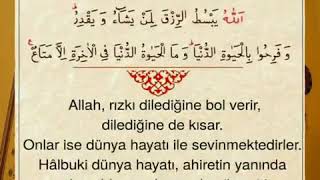 اَللّٰهُ يَبْسُطُ الرِّزْقَ لِمَنْ يَشَٓاءُ وَ يَقْدِرُۜ
وَ فَرِحُوا بِالْحَيٰوةِ الدُّنْيَاۜ وَ مَا الْحَيٰوةُ الدُّنْيَا فِي الْاٰخِرَةِ اِلَّا مَتَاعٌ ۟
Allah, rızkı dilediğine bol verir,
dilediğine de kısar.
Onlar ise dünya hayatı ile sevinmektedirler.
Hâlbuki dünya hayatı, ahiretin yanında